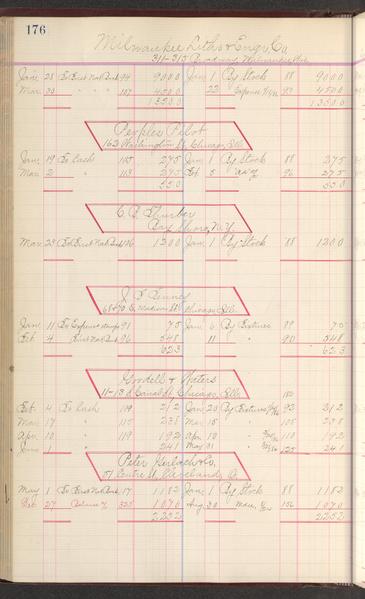 176
Milwaukee Litho & Engr. Co
311-315 Broadway Milwaukee Wis
Jan 28 To First Nat Bank 94 9000 Jan 1 By Stock 88 9000
Mar 30 " " 107 4500 22 Expense 90 4500
13500 13500
Peoples Pilot
162 Washington St Chicago, Ill
Jan 19 To Cash 115 275 Jan 1 By Stock 88 275
Mar 2 " 113 275 Feb 5 96 275
550 550
Bay Shore, N.Y.
Mar 23 To First Nat Bank 106 1200 Jan 1 By Stock 88 1200
Chicago Ill.
Jan 11 To Expense 91 75 Jan 6 By Fixtures 89 75
Feb 4 First Nat Bank 96 548 11 " 90 548
623 623
Goodell & Waters
11-13 Canal St, Chicago, Ills
Feb 4 To Cash 119 212 Jan 20 By Fixtures 93 212
Mar 17 " 115 238 Mar 15 " 105 238
Apr 10 " 119 192 Apr 10 " 110 192
June 1 241 May 31 241
Peter Gerlach & Co,
51 Centre St, Cleveland, O.
May 1 To First Nat Bank 117 1182 Jan 1 By Stock 88 1182
Oct 27 Balance 325 1070 Aug 30 Mdse 156 1070
2252 2252